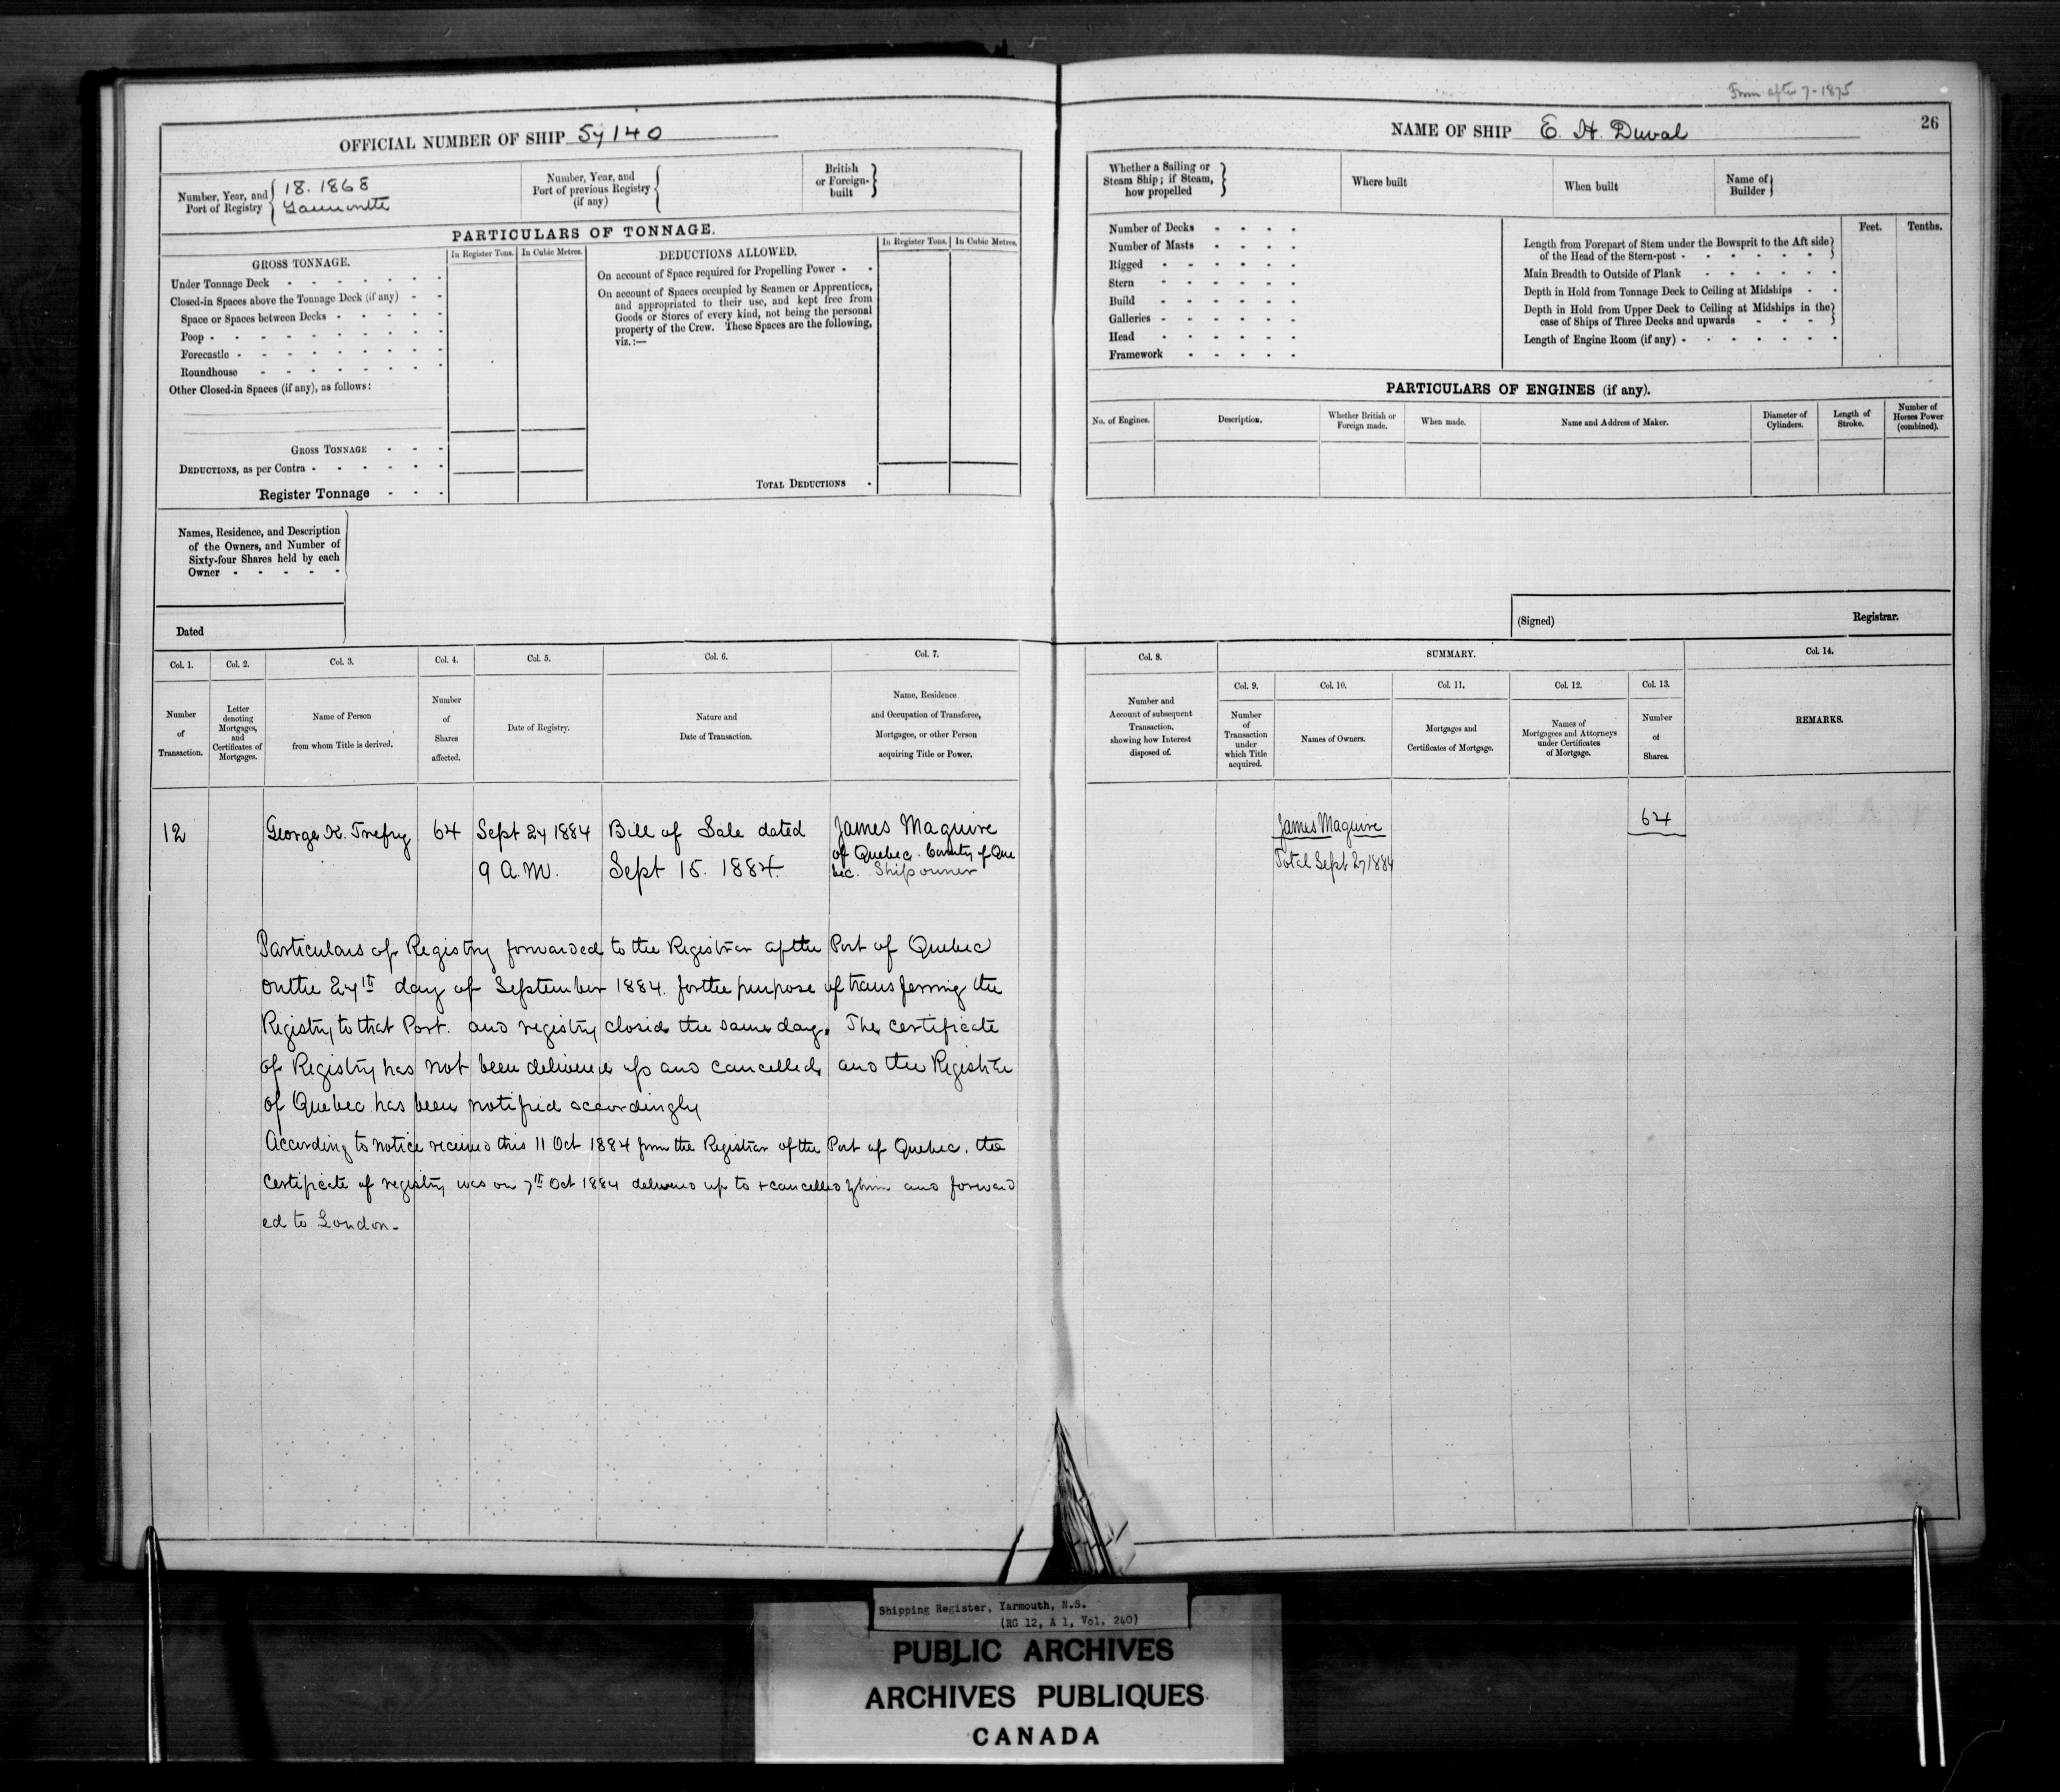 From after 7-1875
OFFICIAL NUMBER OF SHIP 57140
Number, Year, and Port of Registry
18. 1868
Yarmouth
Number, Year, and Port of previous Registry (if any)
British or Foreign-built
PARTICULARS OF TONNAGE.
GROSS TONNAGE.
In Register Tons.
In Cubic Metres.
Under Tonnage Deck
Closed-in Spaces above the Tonnage Deck (if any)
Space or Spaces between Decks
Poop
Forecastle
Roundhouse
Other Closed-in Spaces (if any), as follows:
GROSS TONNAGE
DEDUCTIONS, as per Contra
Register Tonnage
DEDUCTIONS ALLOWED.
In Register Tons.
In Cubic Metres.
On account of Space required for Propelling Power
On account of Spaces occupied by Seamen or Apprentices,
and appropriated to their use, and kept free from
Goods or Stores of every kind, not being the personal
property of the Crew. These Spaces are the following,
viz.:—
TOTAL DEDUCTIONS
Names, Residence, and Description
of the Owners, and Number of
Sixty-four Shares held by each
Owner
Dated
Col. 1.
Number
of
Transaction.
Col. 2.
Letter
denoting
Mortgages,
and
Certificates of
Mortgages.
Col. 3.
Name of Person
from whom Title is derived.
Col. 4.
Number
of
Shares
affected.
Col. 5.
Date of Registry.
Col. 6.
Nature and
Date of Transaction.
Col. 7.
Name, Residence
and Occupation of Transferee,
Mortgagee, or other Person
acquiring Title or Power.
12 George K. Trefry 64 Sept 27 1884 Bill of Sale dated James Maguire
9 A.M. Sept 15. 1884. of Quebec. County of Que
bec. Shipowner
Particulars of Registry forwarded to the Registrar of the Port of Quebec
on the 27th day of September 1884. for the purpose of transferring the
Registry to that Port. and registry closed the same day. The certificate
of Registry has not been delivered up and cancelled, and the Registrar
of Quebec has been notified accordingly
According to notice received this 11 Oct 1884 from the Registrar of the Port of Quebec. the
Certificate of registry was on 7th Oct 1884 delivered up to + cancelled by him and forward
ed to London-
NAME OF SHIP E. H. Duval
26
Whether a Sailing or
Steam Ship; if Steam,
how propelled
Where built
When built
Name of
Builder
Number of Decks
Number of Masts
Rigged
Stern
Build
Galleries
Head
Framework
Feet.
Tenths.
Length from Forepart of Stem under the Bowsprit to the Aft side
of the Head of the Stern-post
Main Breadth to Outside of Plank
Depth in Hold from Tonnage Deck to Ceiling at Midships
Depth in Hold from Upper Deck to Ceiling at Midships in the
case of Ships of Three Decks and upwards
Length of Engine Room (if any)
PARTICULARS OF ENGINES (if any).
No. of Engines.
Description.
Whether British or
Foreign made.
When made.
Name and Address of Maker.
Diameter of
Cylinders.
Length of
Stroke.
Number of
Horses Power
(combined).
(Signed)
Registrar.
Col. 8.
Number and
Account of subsequent
Transaction,
showing how Interest
disposed of.
SUMMARY.
Col. 9.
Number
of
Transaction
under
which Title
acquired.
Col. 10.
Names of Owners.
Col. 11.
Mortgages and
Certificates of Mortgage.
Col. 12.
Names of
Mortgagees and Attorneys
under Certificates
of Mortgage.
Col. 13.
Number
of
Shares.
Col. 14.
REMARKS.
James Maguire 64
Total Sept 27 1884
Shipping Register, Yarmouth, N.S.
(RG 12, A 1, Vol. 240)
PUBLIC ARCHIVES
ARCHIVES PUBLIQUES
CANADA